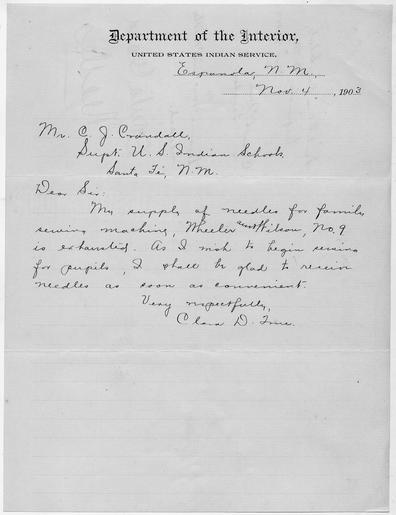 Department of the Interior,
UNITED STATES INDIAN SERVICE,
Espanola, N.M.,
Nov. 4, 1903
Mr. C. J. Crandall,
Supt. U. S. Indian Schools
Santa Fé, N.M.
Dear Sir:
My supply of needles for family
sewing machine, Wheeler and Wilson, No. 9
is exhausted. As I wish to begin sewing
for pupils, I shall be glad to receive
needles as soon as convenient.
Very respectfully,
Clara D. True.